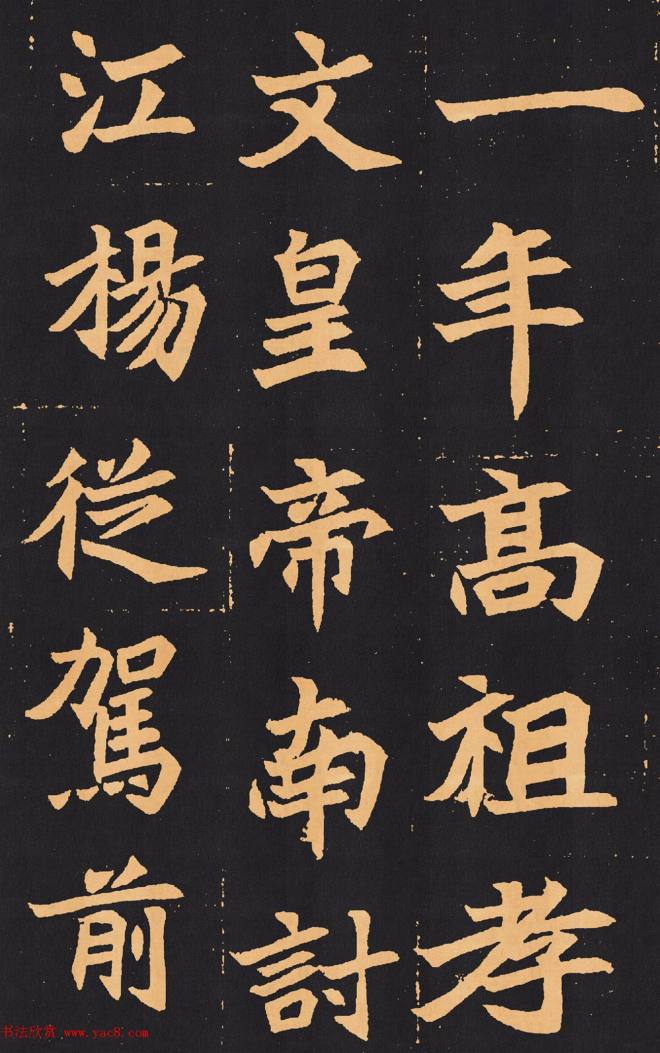 一年高祖孝
文皇帝南討
江楊従駕前
书法欣赏 www.yac8.com